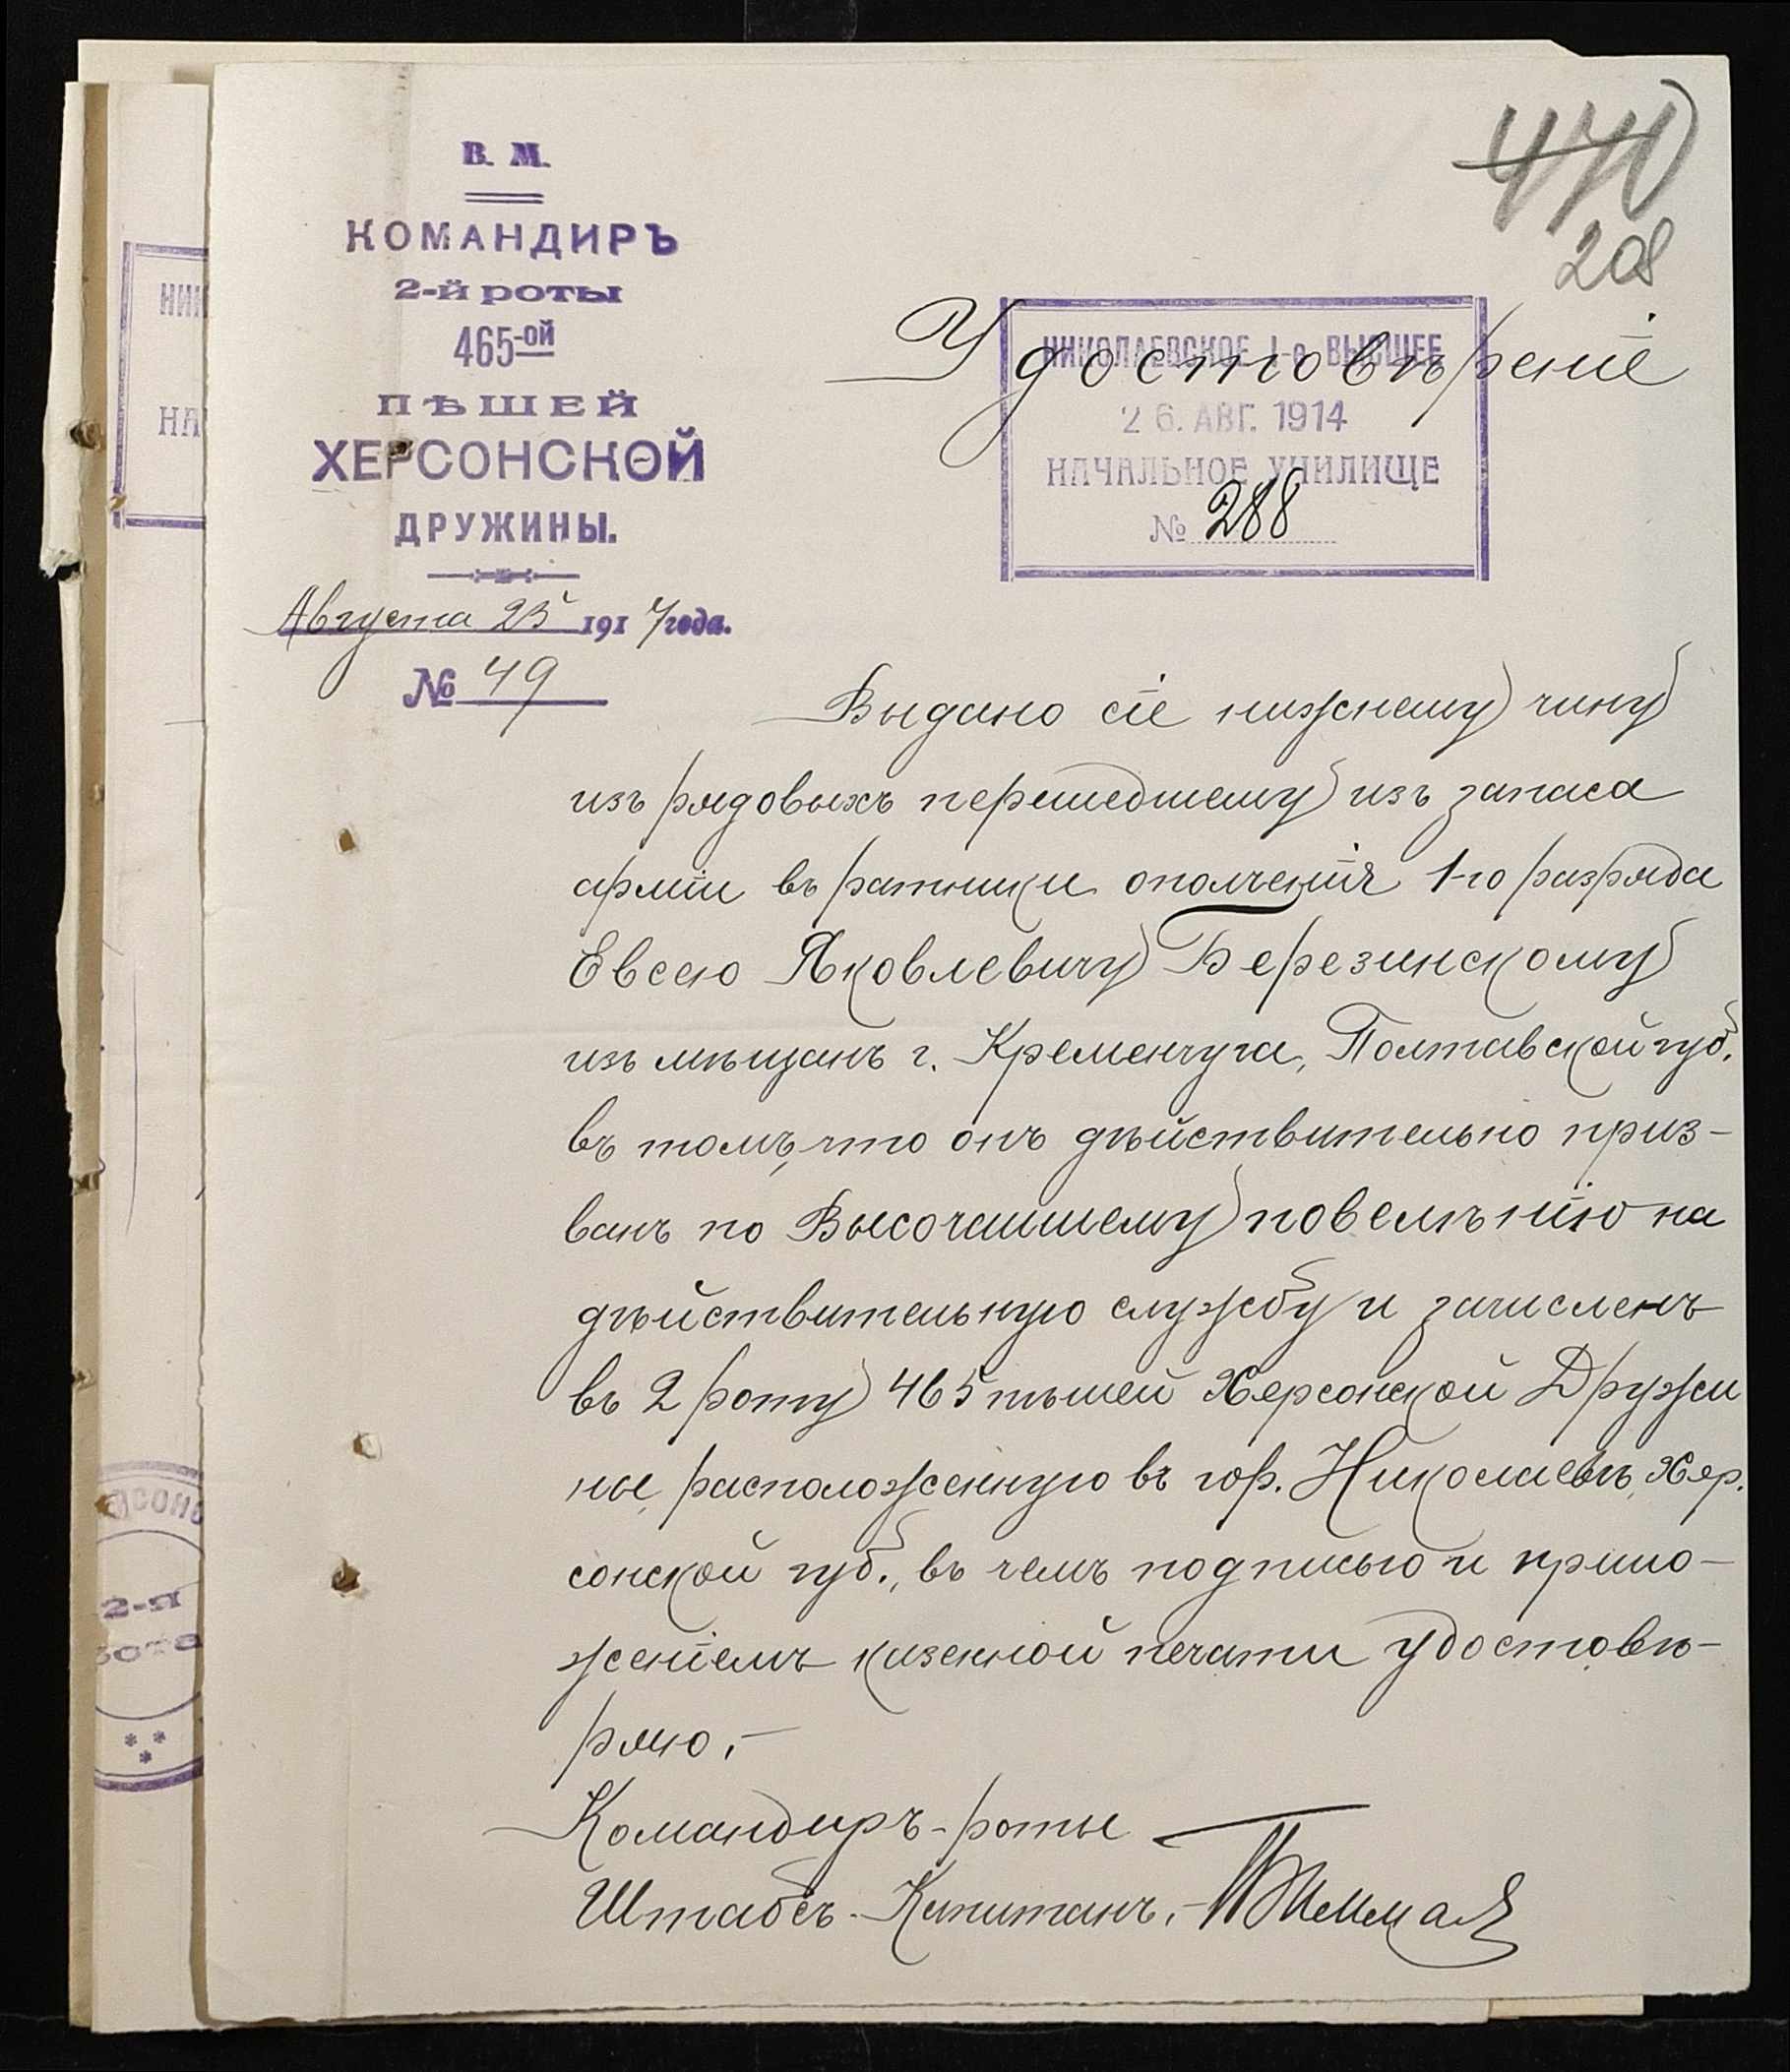 470
208
В. М.
КОМАНДИРЪ
2-й роты
465-ой
ПѢШЕЙ
ХЕРСОНСКОЙ
ДРУЖИНЫ.
Августа 25 1914 года.
№ 49
Удостовѣреніе
НИКОЛАЕВСКОЕ 1-е ВЫСШЕЕ
26. АВГ. 1914
НАЧАЛЬНОЕ УЧИЛИЩЕ
№ 288
Выдано сіе нижнему чину
изъ рядовыхъ перешедшему изъ запаса
арміи въ ратники ополченія 1-го разряда
Евсею Яковлевичу Березинскому
изъ мѣщанъ г. Кременчуга, Полтавской губ.
въ томъ, что онъ дѣйствительно приз-
ванъ по Высочайшему повелѣнію на
дѣйствительную службу и зачисленъ
въ 2 роту 465 пѣшей Херсонской Дружи
ны, расположенную въ гор. Николаевѣ, Хер.
сонской губ., въ чемъ подписью и прило-
женіемъ казенной печати удостовѣ-
ряю.-
Командиръ-роты
Штабсъ-Капитанъ.-
НИК
НА
2-я